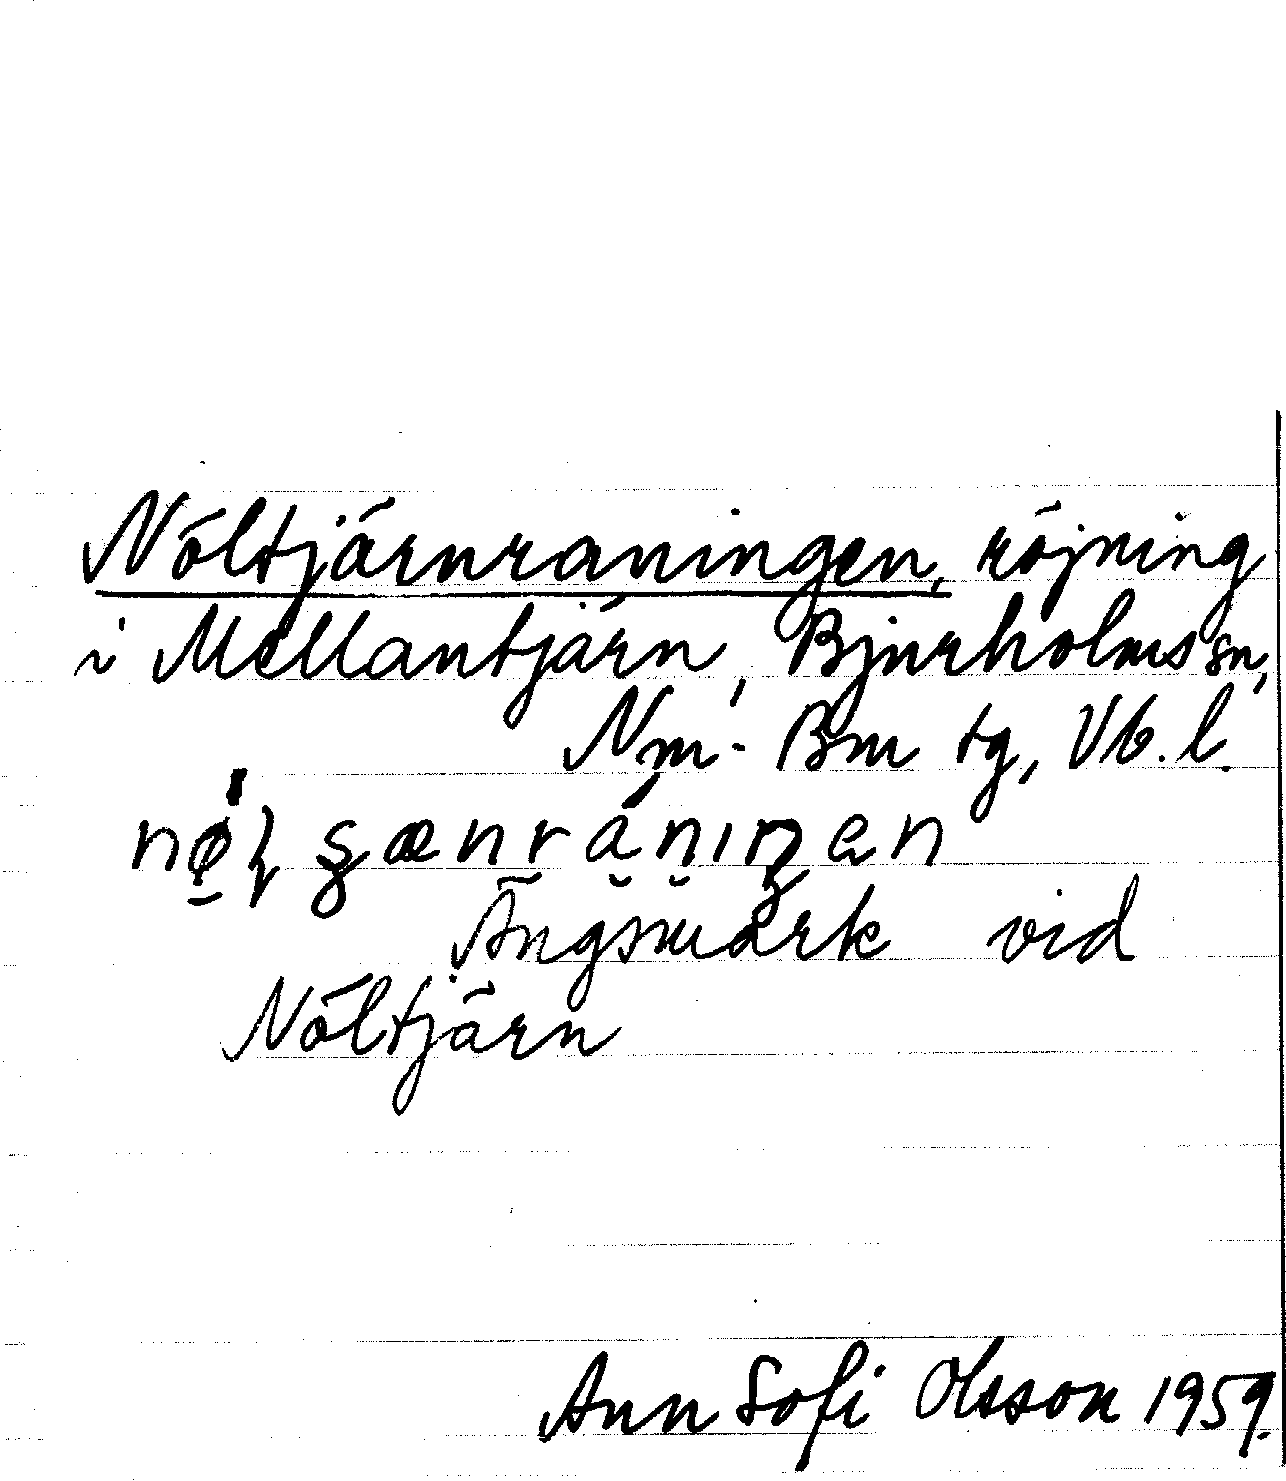 Nöltjärnraningen, röjning
i Mellantjärn, Bjurholms sn,
Nm. Bm tg, Vb. l.
Ängsmark vid
Nöltjärn
Ann Sofi Olsson 1959.